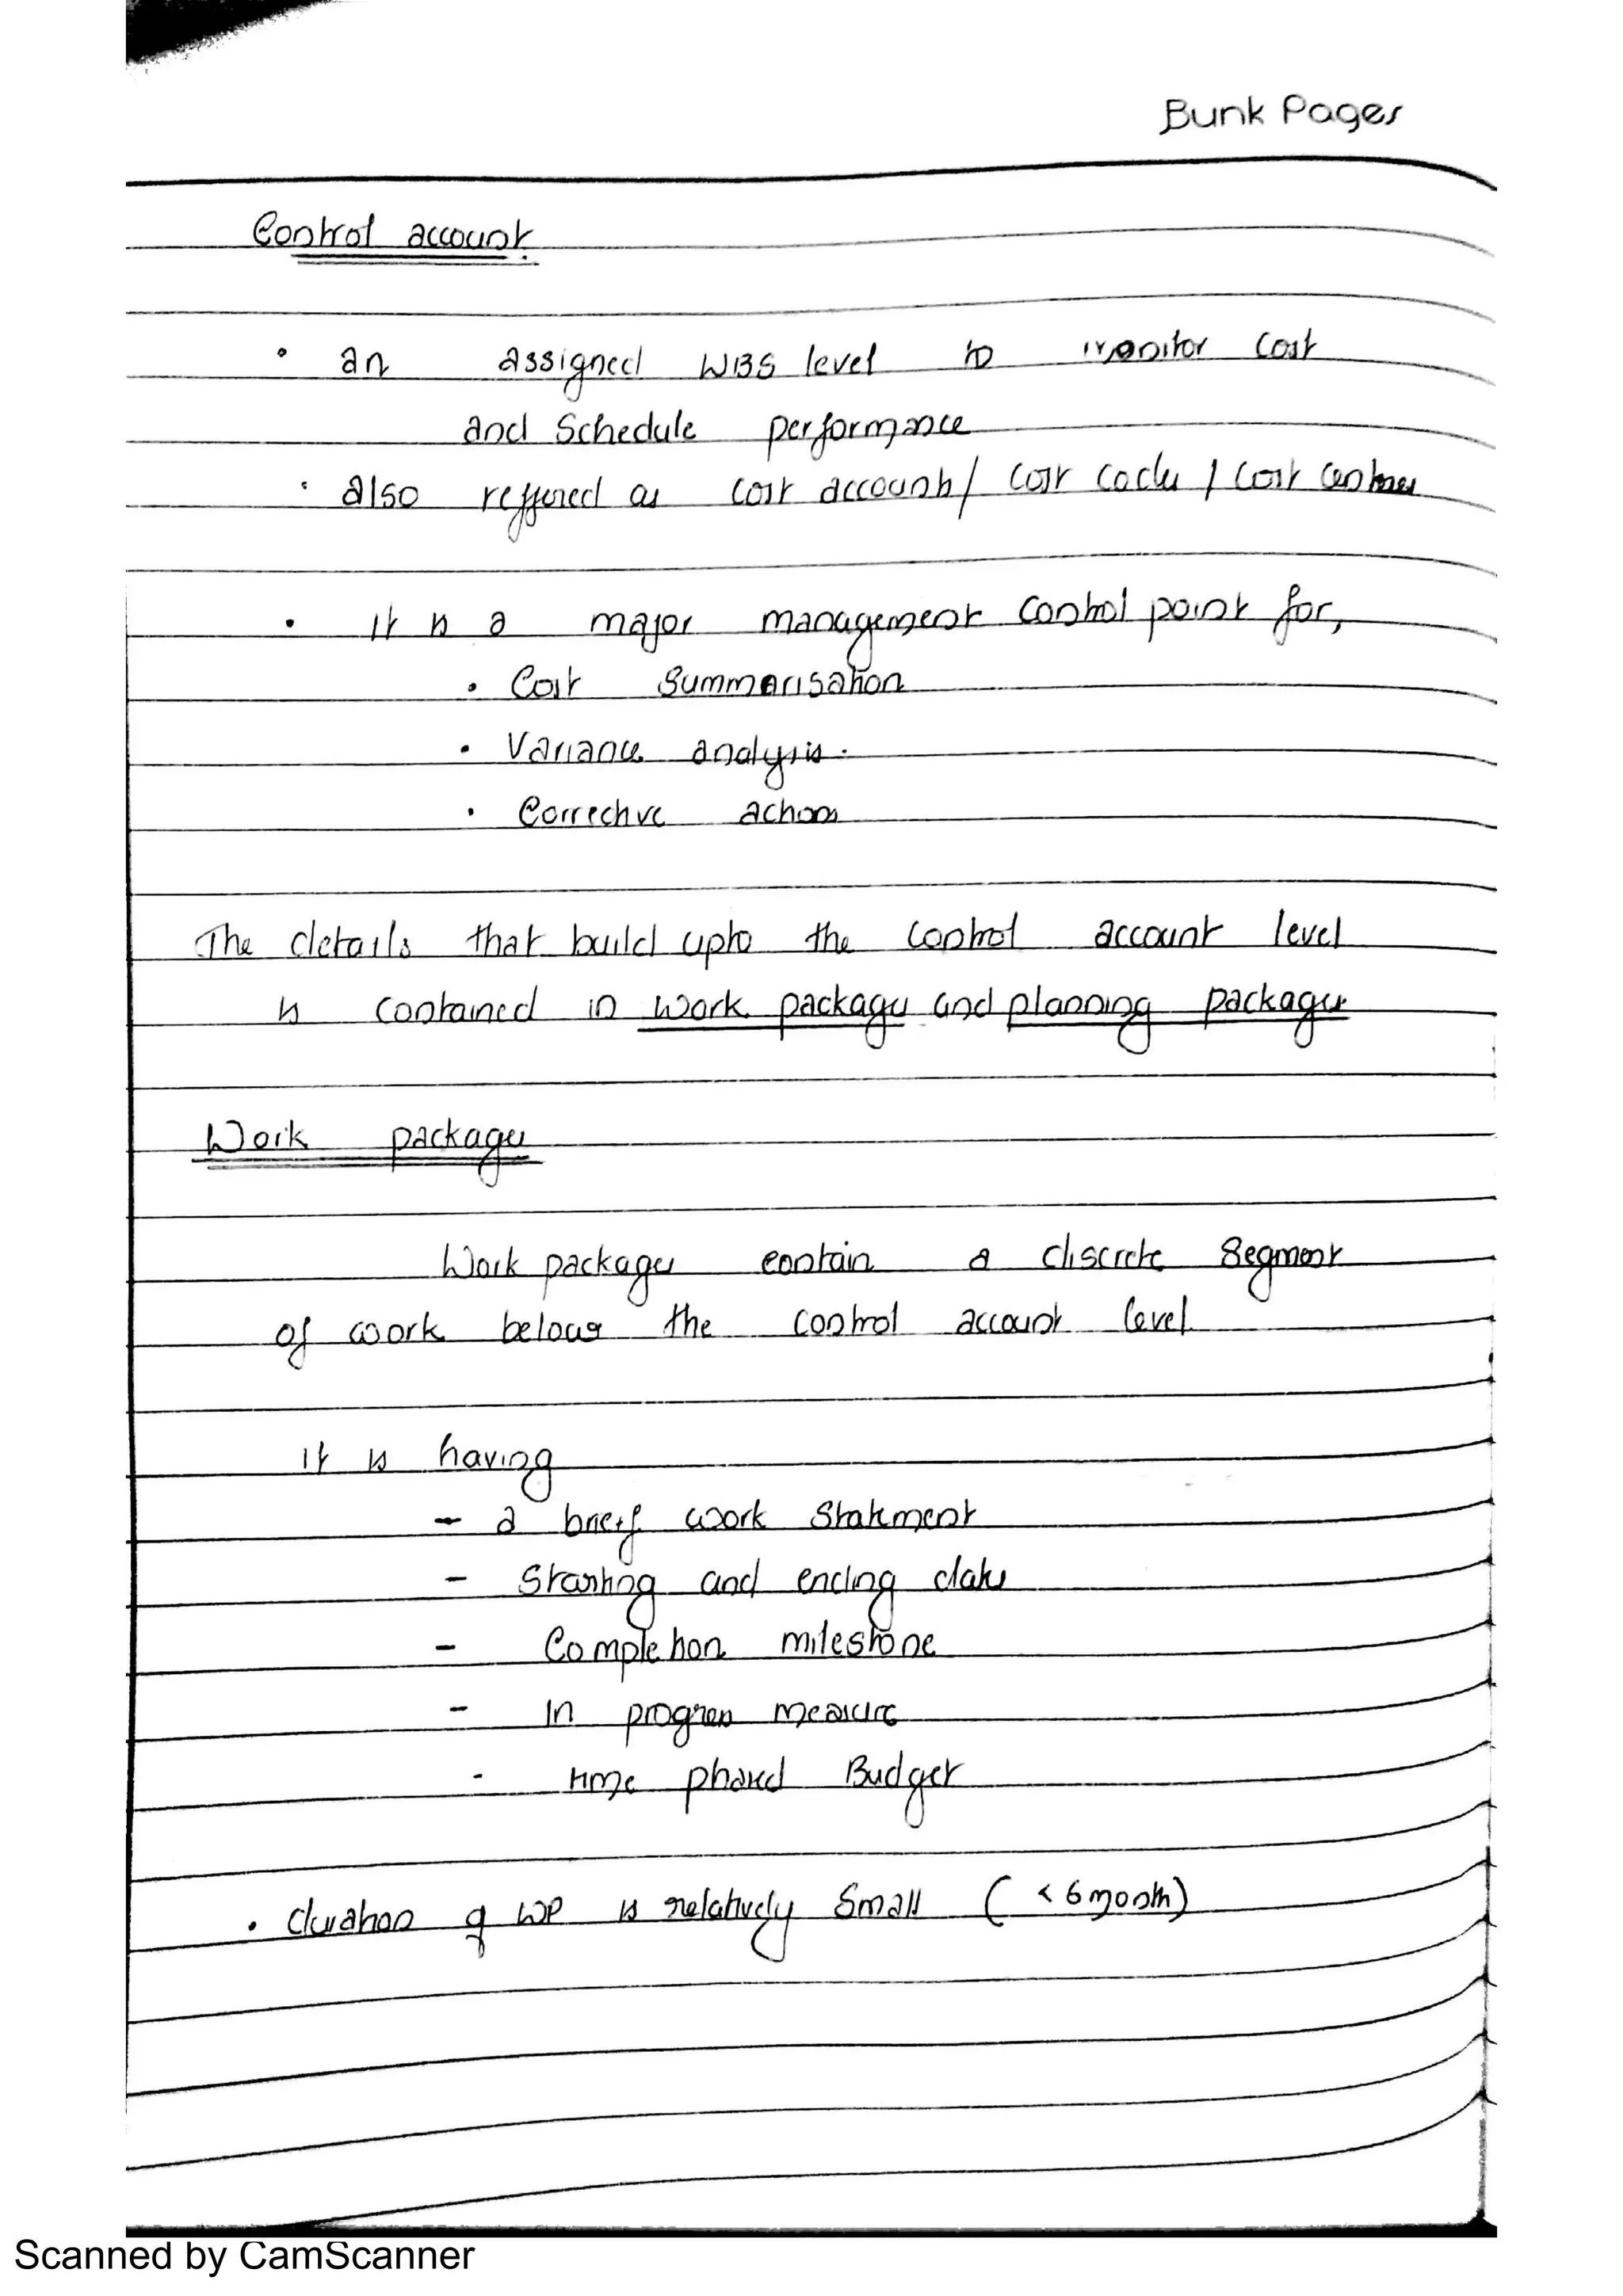 Bunk Pages
Control account.
• an assigned WBS level to monitor cost
and Schedule performance
• also reffered as cost accounts / cost codes / cost centres
• It is a major management control point for,
• Cost Summarisation
• Variance analysis.
• Corrective actions
The details that build upto the control account level
is contained in work packages and planning packages
Work packages
Work packages contain a discrete Segment
of work below the control account level
It is having
- a brief work statement
- Starting and ending dates
- Completion milestone
- In progress measure
- time phased Budget
• duration of WP is relatively Small ( < 6 month)
Scanned by CamScanner